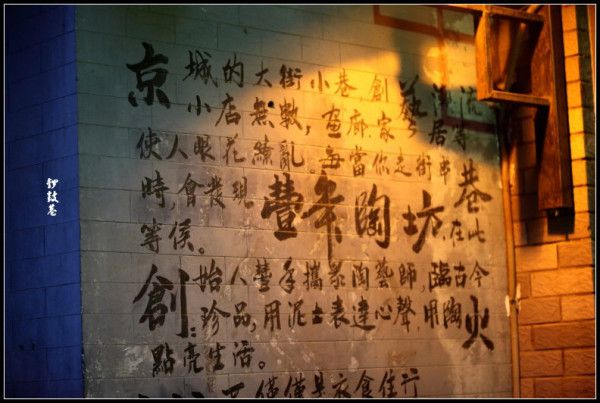 京城的大街小巷,創藝潮流
小店無數,画廊家居等
使人眼花繚亂。每當你走街串巷
時,會發現,豐年陶坊,在此
等侯。
創始人豐年攜眾陶藝師,臨古今
珍品,用泥土表達心聲,用陶火
點亮生活。
僅僅是衣食住行
锣鼓巷